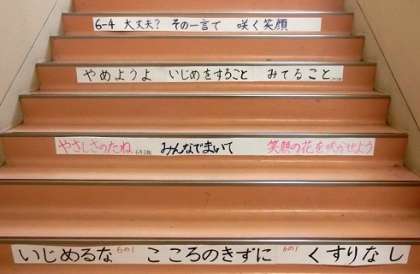 6-4 大丈夫? その一言で 咲く笑顔
やめようよ いじめをすること みてること
やさしさのたね みんなでまいて 笑顔の花を咲かせよう
いじめるな 6の1 こころのきずに 6の1 くすりなし